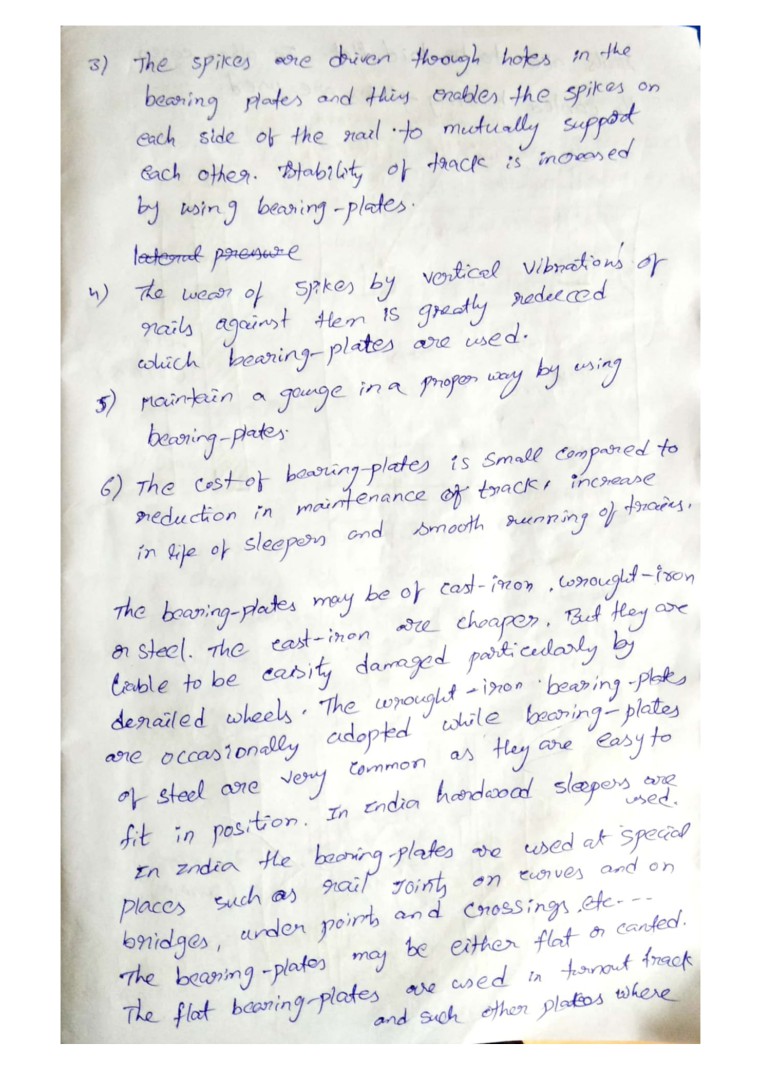 3) The spikes are driven through holes in the
bearing plates and this enables the spikes on
each side of the rail to mutually support
each other. Stability of track is increased
by using bearing-plates.
lateral pressure
4) The wear of spikes by vertical vibrations of
rails against them is greatly reduced
which bearing-plates are used.
5) Maintain a gauge in a proper way by using
bearing-plates.
6) The cost of bearing-plates is small compared to
reduction in maintenance of track, increase
in life of sleepers and smooth running of trains.
The bearing-plates may be of cast-iron, wrought-iron
or steel. The cast-iron are cheaper. But they are
liable to be easity damaged particularly by
derailed wheels. The wrought-iron bearing-plates
are occasionally adopted while bearing-plates
of steel are very common as they are easy to
fit in position. In India hardwood sleepers are
used.
In India the bearing-plates are used at special
places such as rail joints on curves and on
bridges, under points and crossings, etc---
The bearing-plates may be either flat or canted.
The flat bearing-plates are used in turnout track
and such other places where